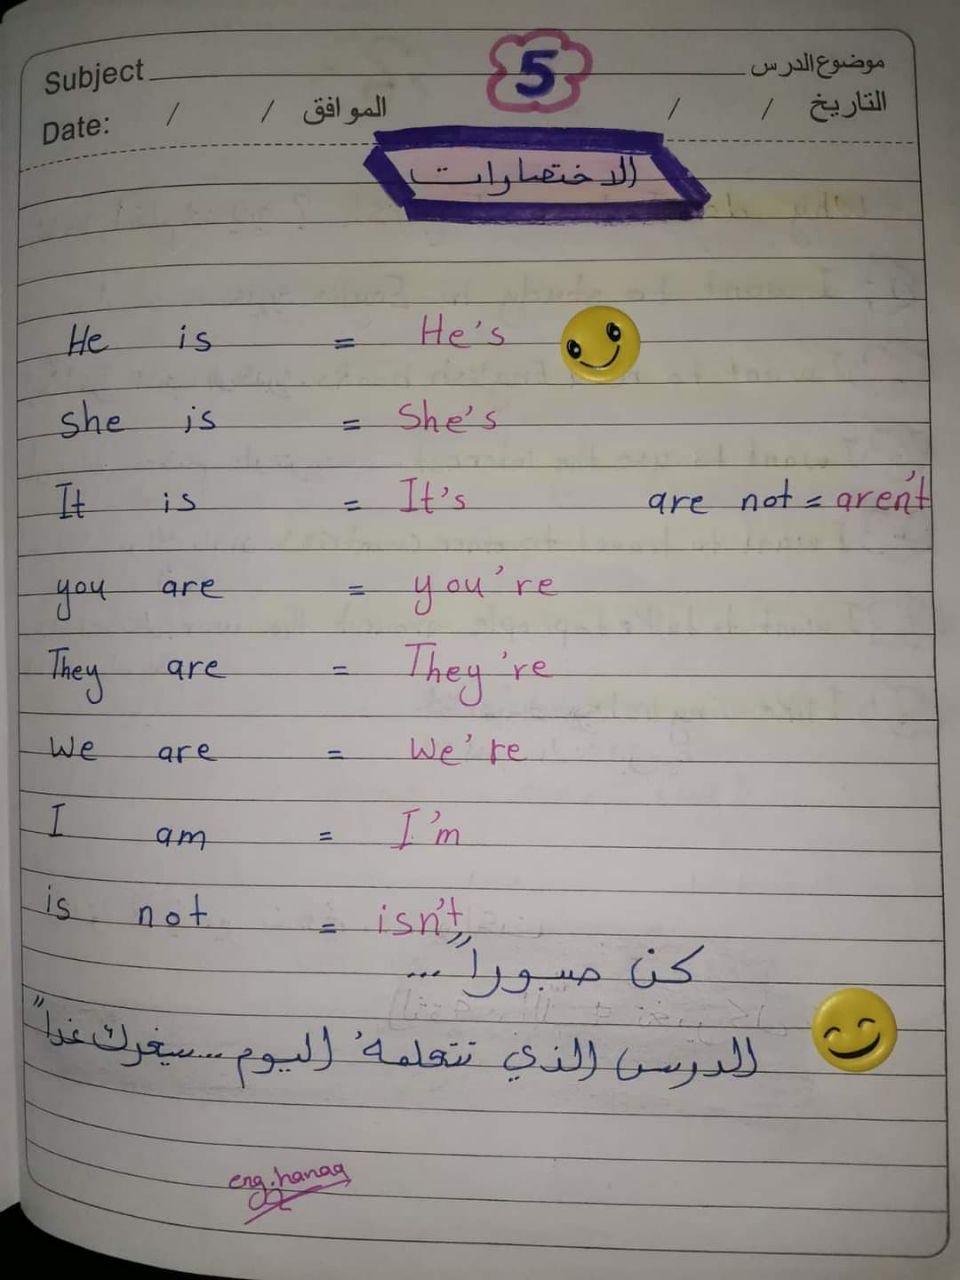 Subject
5
موضوع الدرس
Date: / / الموافق / / التاريخ
الاختصارات
He is = He's
She is = She's
It is = It's are not = aren't
you are = you're
They are = They're
We are = We're
I am = I'm
is not = isn't
كن صبوراً ...
الدرس الذي تتعلمه اليوم ... سيغيرك غداً"
eng.hanaa